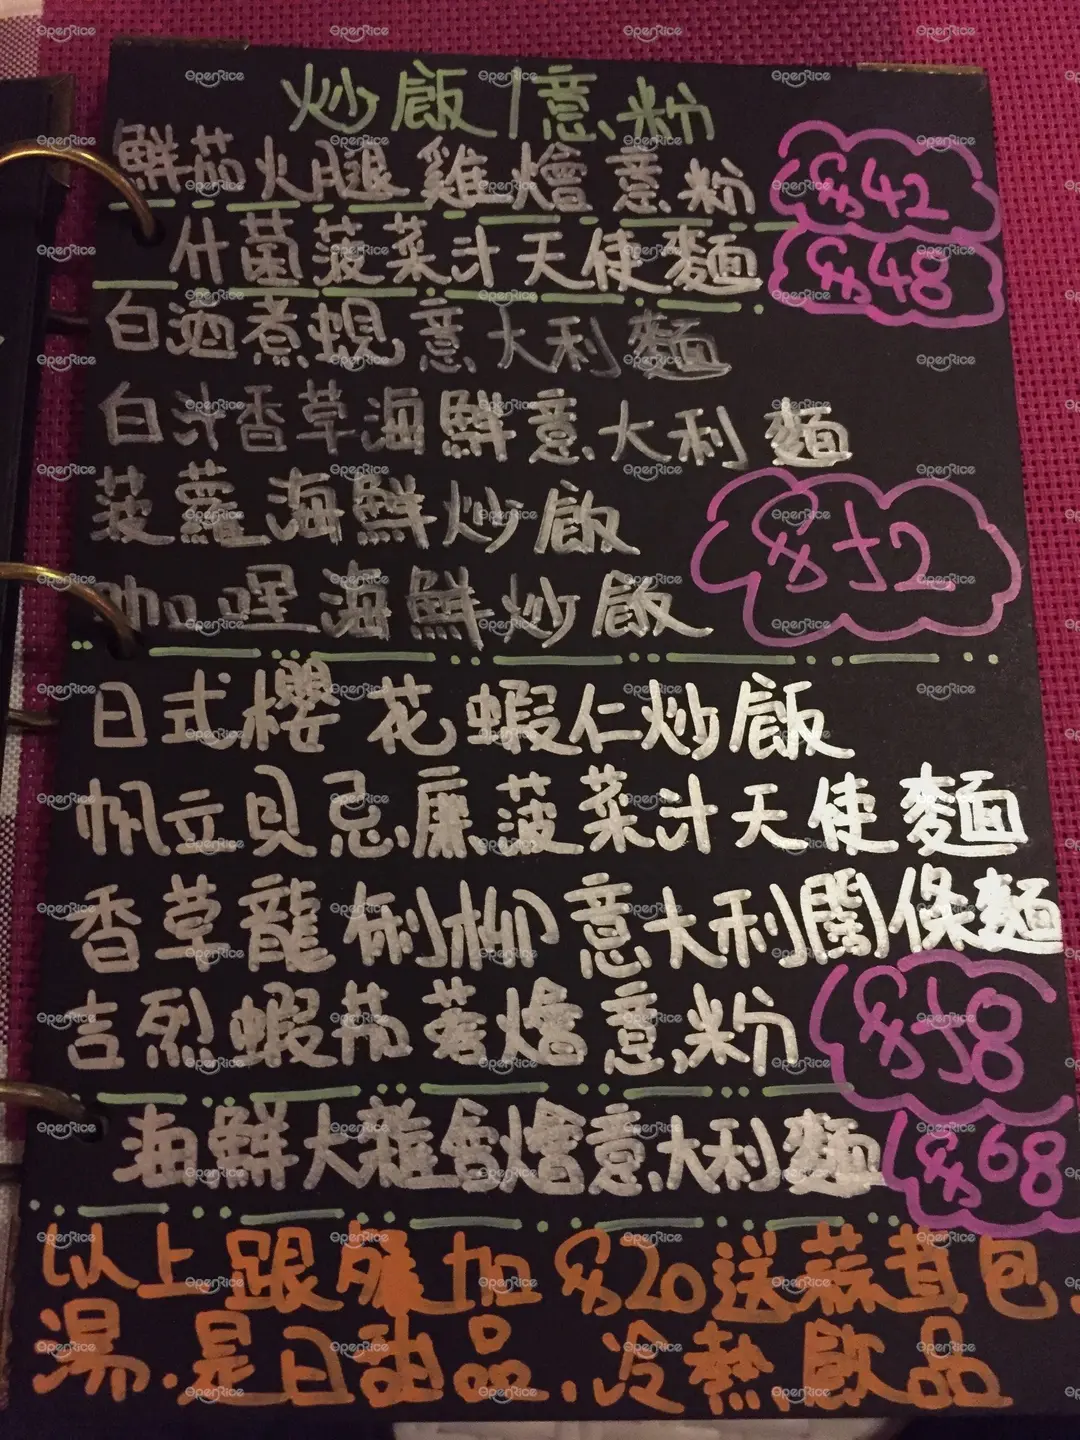 炒飯|意粉
鮮茄火腿雞燴意粉 $42
什菌菠菜汁天使麵 $48
白酒煮蜆意大利麵
白汁香草海鮮意大利麵
菠蘿海鮮炒飯 $52
咖喱海鮮炒飯
日式櫻花蝦仁炒飯
帆立貝忌廉菠菜汁天使麵
香草龍俐柳意大利闊條麵
吉烈蝦茄蓉燴意粉 $58
海鮮大雜會燴意大利麵 $68
以上跟餐加$20送蒜茸包.
湯.是日甜品.冷熱飲品
OpenRice